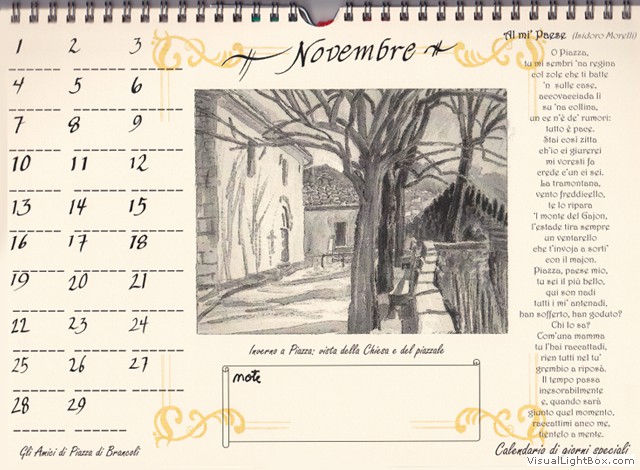 Novembre
1 2 3
4 5 6
7 8 9
10 11 12
13 14 15
16 17 18
19 20 21
22 23 24
25 26 27
28 29
Gli Amici di Piazza di Brancoli
Inverno a Piazza: vista della Chiesa e del piazzale
note
Al mi' Paese (Isidoro Morelli)
O Piazza,
tu mi sembri 'na regina
col zole che ti batte
'n sulle case,
accovacciada lì
su 'na collina,
un ce n'è de' rumori:
tutto è pace.
Stai così zitta
ch'io ci giurerei
mi voresti fa
crede c'un ci sei.
La tramontana,
vento freddicello,
te lo ripara
'l monte del Gajon,
l'estade tira sempre
un ventarello
che t'invoja a sorti'
con il majon.
Piazza, paese mio,
tu sei il più bello,
qui son nadi
tutti i mi' antenadi,
han sofferto, han goduto?
Chi lo sa?
Com'una mamma
tu l'hai raccattadi,
rien tutti nel tu'
grembio a riposà.
Il tempo passa
inesorabilmente
e, quando sarà
giunto quel momento,
raccattimi anco me,
tientelo a mente.
Calendario di giorni speciali
VisualLightBox.com